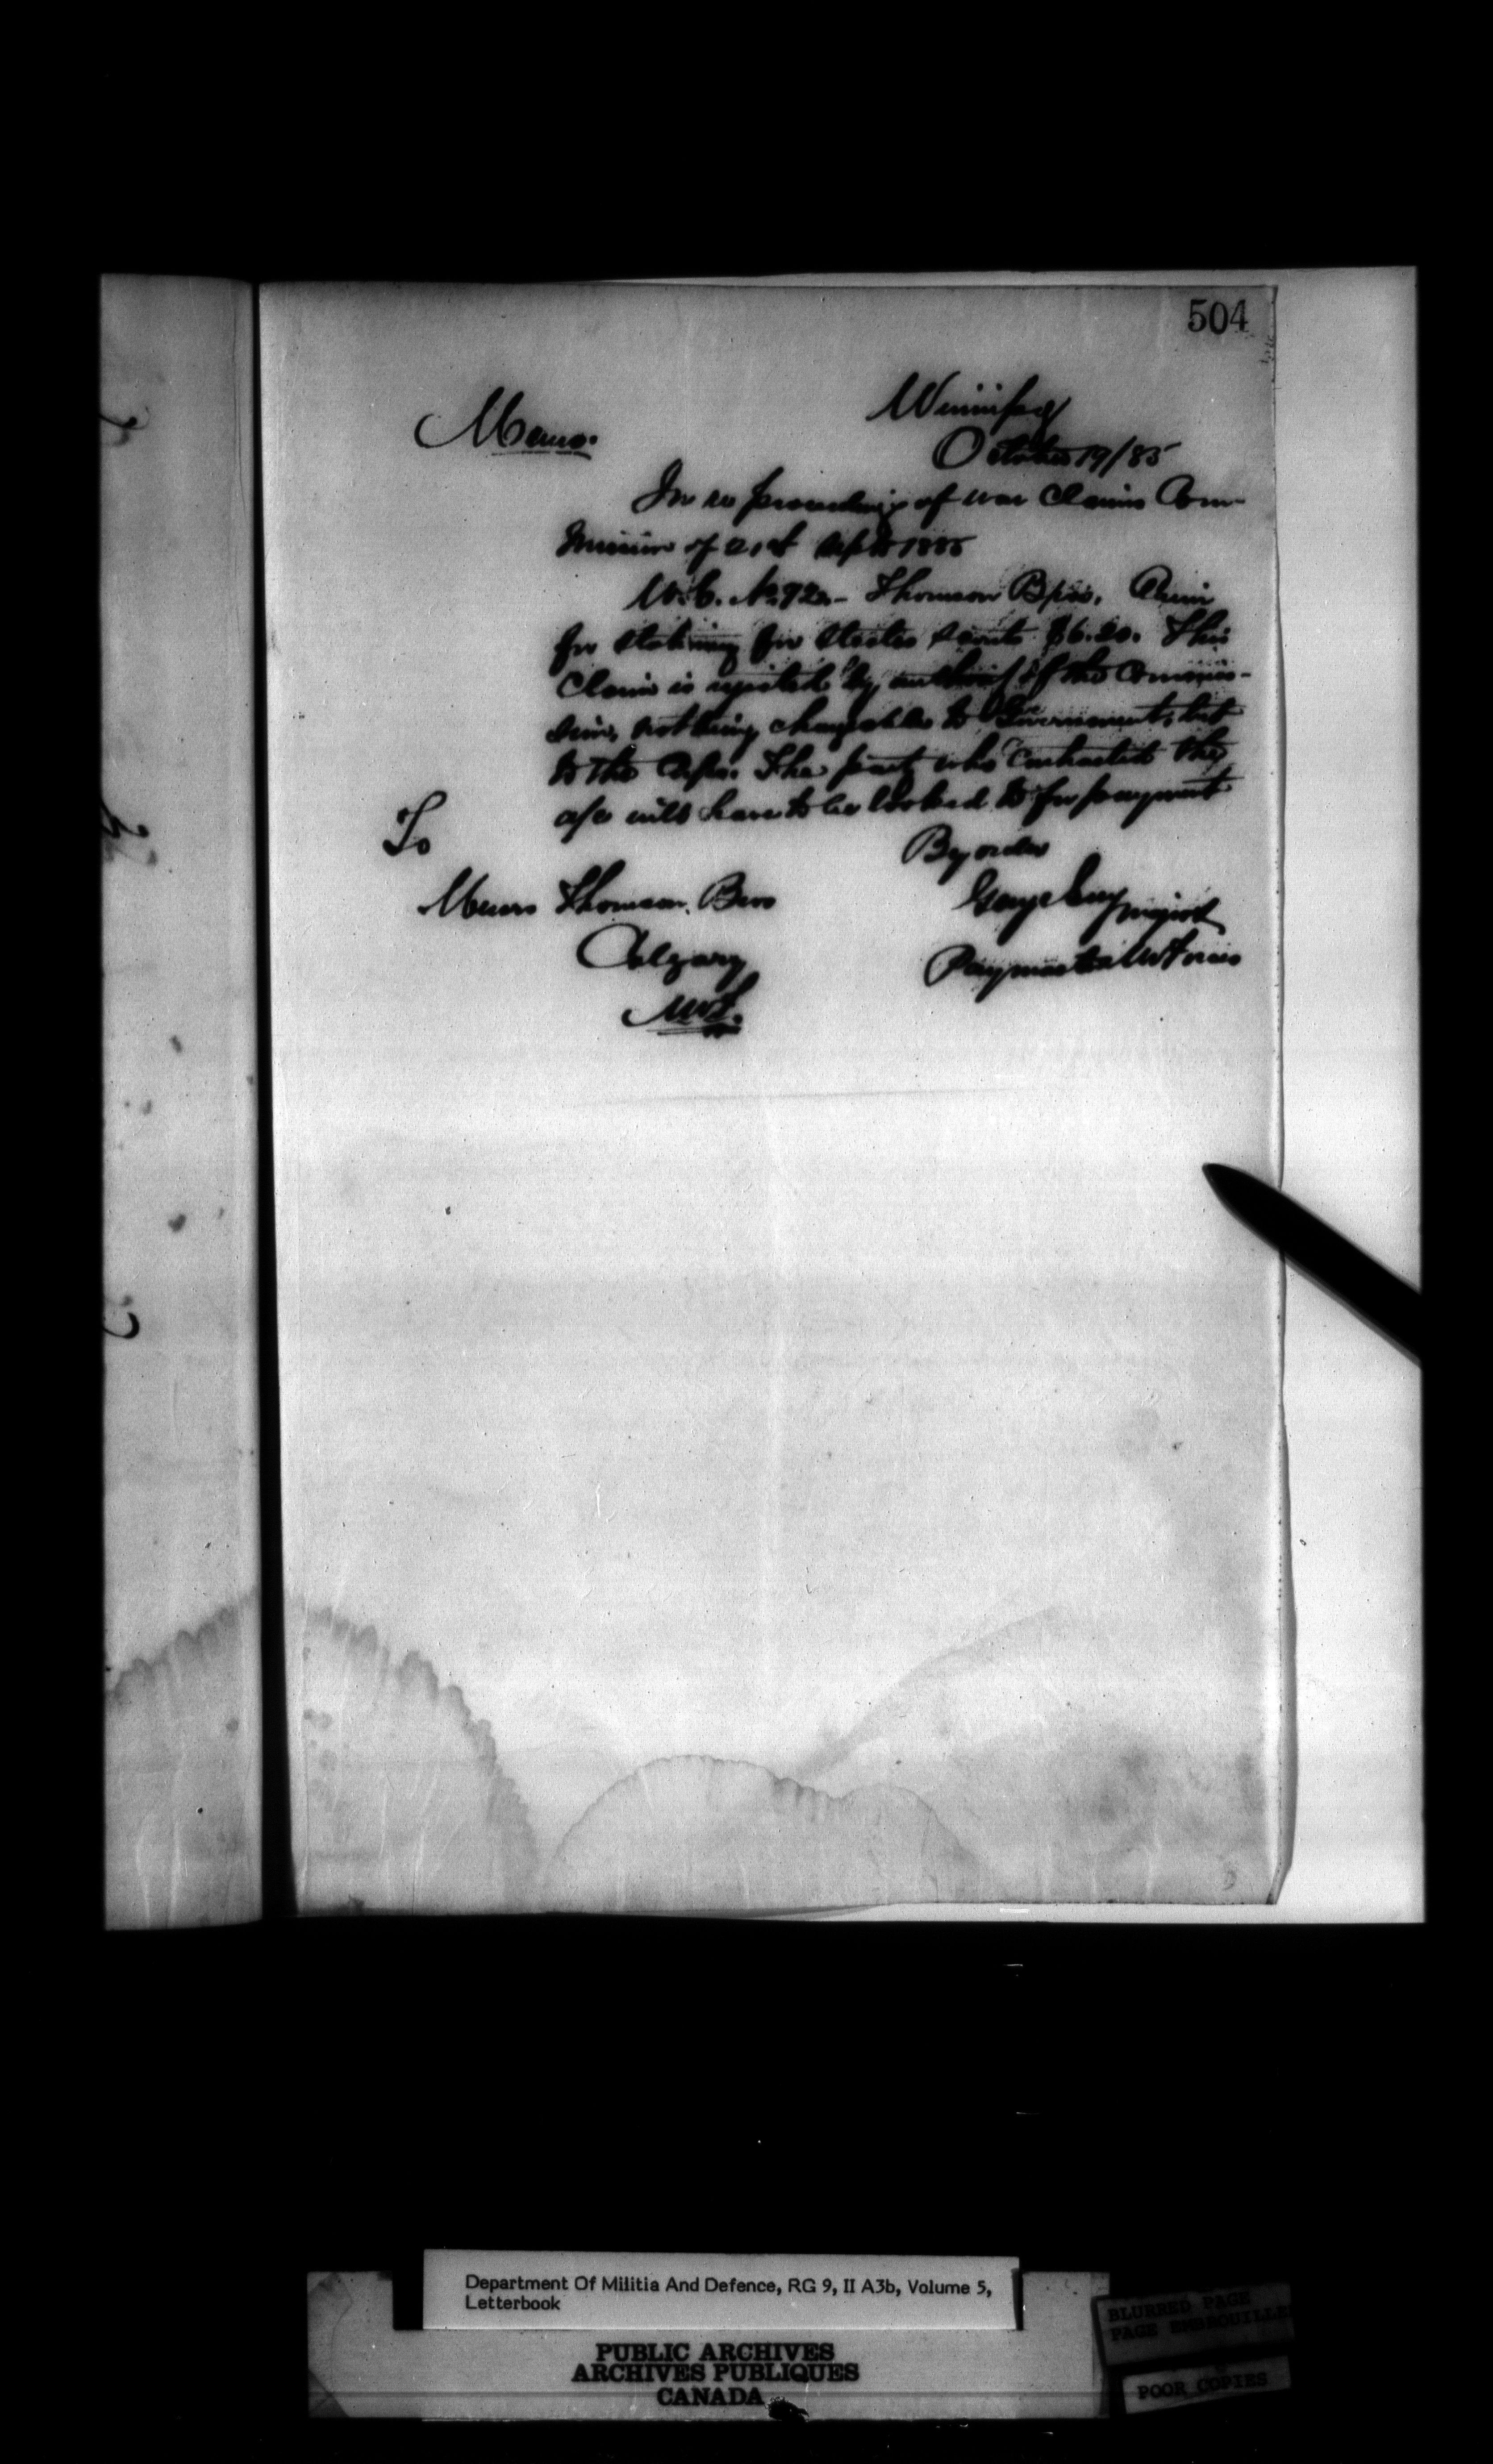 504
Winnipeg
Memo.
October 19/85
In re proceedings of War Claims Com-
mission of 21st Sept 1885
W.C. No. 92.- Thomson Bros. Claim
for Stationery for Steeles Scouts $6.20. This
Claim is rejected by authority of the Commis-
sion, not being chargeable to Government, but
to the Corps. The party who contracted the
a/c will have to be looked to for payment
To
By order
Messrs Thomson Bros
George Guy Major
Calgary
Paymaster NW Forces
NWT.
Department Of Militia And Defence, RG 9, II A3b, Volume 5,
Letterbook
PUBLIC ARCHIVES
ARCHIVES PUBLIQUES
CANADA
BLURRED PAGE
PAGE EMBROUILLE
POOR COPIES